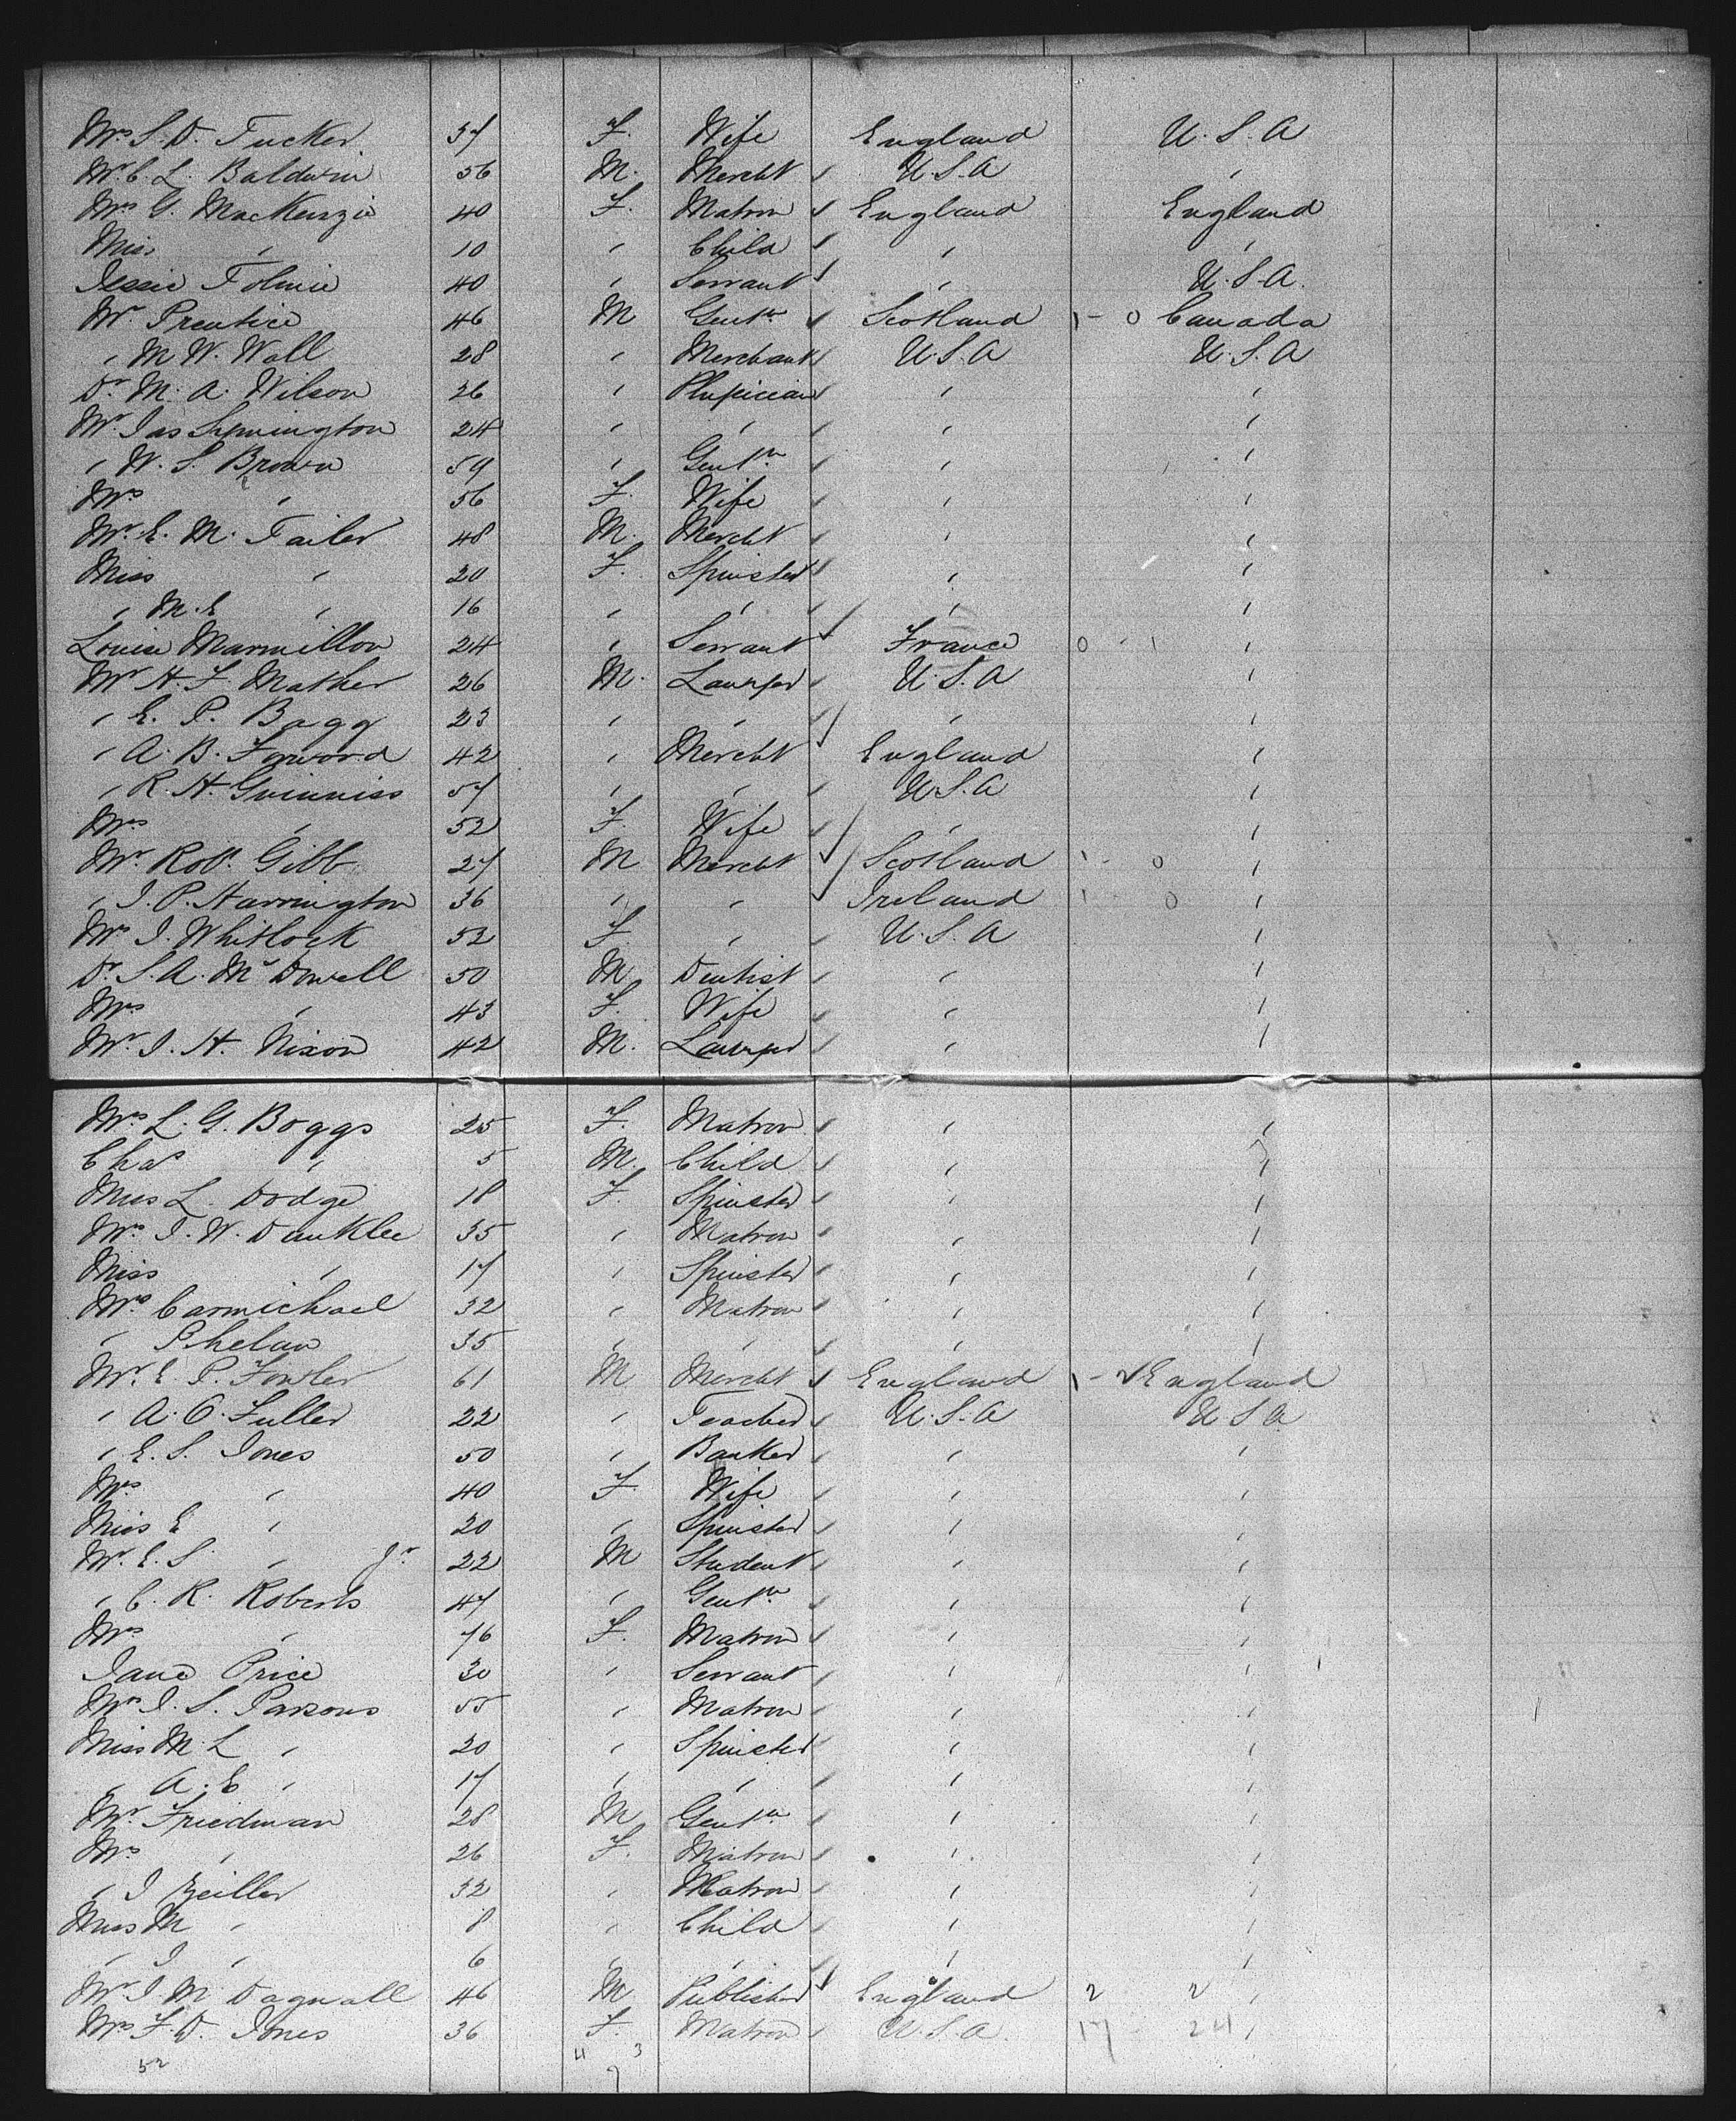 Mrs S. D. Tucker 37 F. Wife England U.S.A
Mr C. L. Baldwin 56 M. Mercht U.S.A "
Mrs G. MacKenzie 40 F. Matron England England
Miss " 10 " Child " "
Jessie Tolmie 40 " Servant " U.S.A.
Mr Prentice 46 M Gentn Scotland 1 - 0 Canada
" M W. Wall 28 " Merchant U.S.A U.S.A
Dr M. A. Wilson 26 " Physician " "
Mr Jas 24 " " " "
" W. S. Brown 59 " Gentn " "
Mrs " 56 F. Wife " "
Mr E. M. Tailer 48 M. Mercht " "
Miss " 20 F. Spinster " "
" M. E " 16 " " " "
Louise Marmillon 24 " Servant France 0 - 1 "
Mr H. F. Mather 26 M. Lawyer U.S.A "
" E. P. Bagg 23 " " " "
" A. B. Forword 42 " Mercht England "
" R. H. 57 " " U.S.A "
Mrs " 52 F. Wife " "
Mr Robt Gibb 27 M Mercht Scotland 1 - 0 "
" J. P. Harrington 36 " " Ireland 1 - 0 "
Mrs J. Whitlock 52 F " U.S.A "
Dr S. A. McDowell 50 M Dentist " "
Mrs " 43 F. Wife " "
Mr J. H. Nixon 42 M. Lawyer " "
Mrs L. G. Boggs 25 F. Matron " "
Chas " 5 M. Child " "
Miss L. Dodge 18 F. Spinster " "
Mrs J. W. Dunklee 35 " Matron " "
Miss " 17 " Spinster " "
Mrs Carmichael 32 " Matron " "
" Phelan 35 " " " "
Mr E. P. Fowler 61 M Mercht England 1 - England
" A. O. Fuller 22 " Teacher U.S.A U S A
" E. S. Jones 50 " Banker " "
Mrs " 40 F. Wife " "
Miss E " 20 " Spinster " "
Mr E. S. " Jr 22 M Student " "
" C. R. Roberts 47 " Gentn " "
Mrs " 76 F. Matron " "
Jane Price 30 " Servant " "
Mrs J. S. Parsons 55 " Matron " "
Miss M. L " 20 " Spinster " "
" A. E " 17 " " " "
Mr Friedman 28 M Gentn " "
Mrs " 26 F. Matron " "
" J Zeiller 32 " Matron " "
Miss M " 8 " Child " "
" J " 6 " " " "
Mr J. M. Dagnall 46 M Publisher England 2 2 "
Mrs F. D. Jones 36 F. Matron U.S.A. 17 - 24 "
52 4 3
7